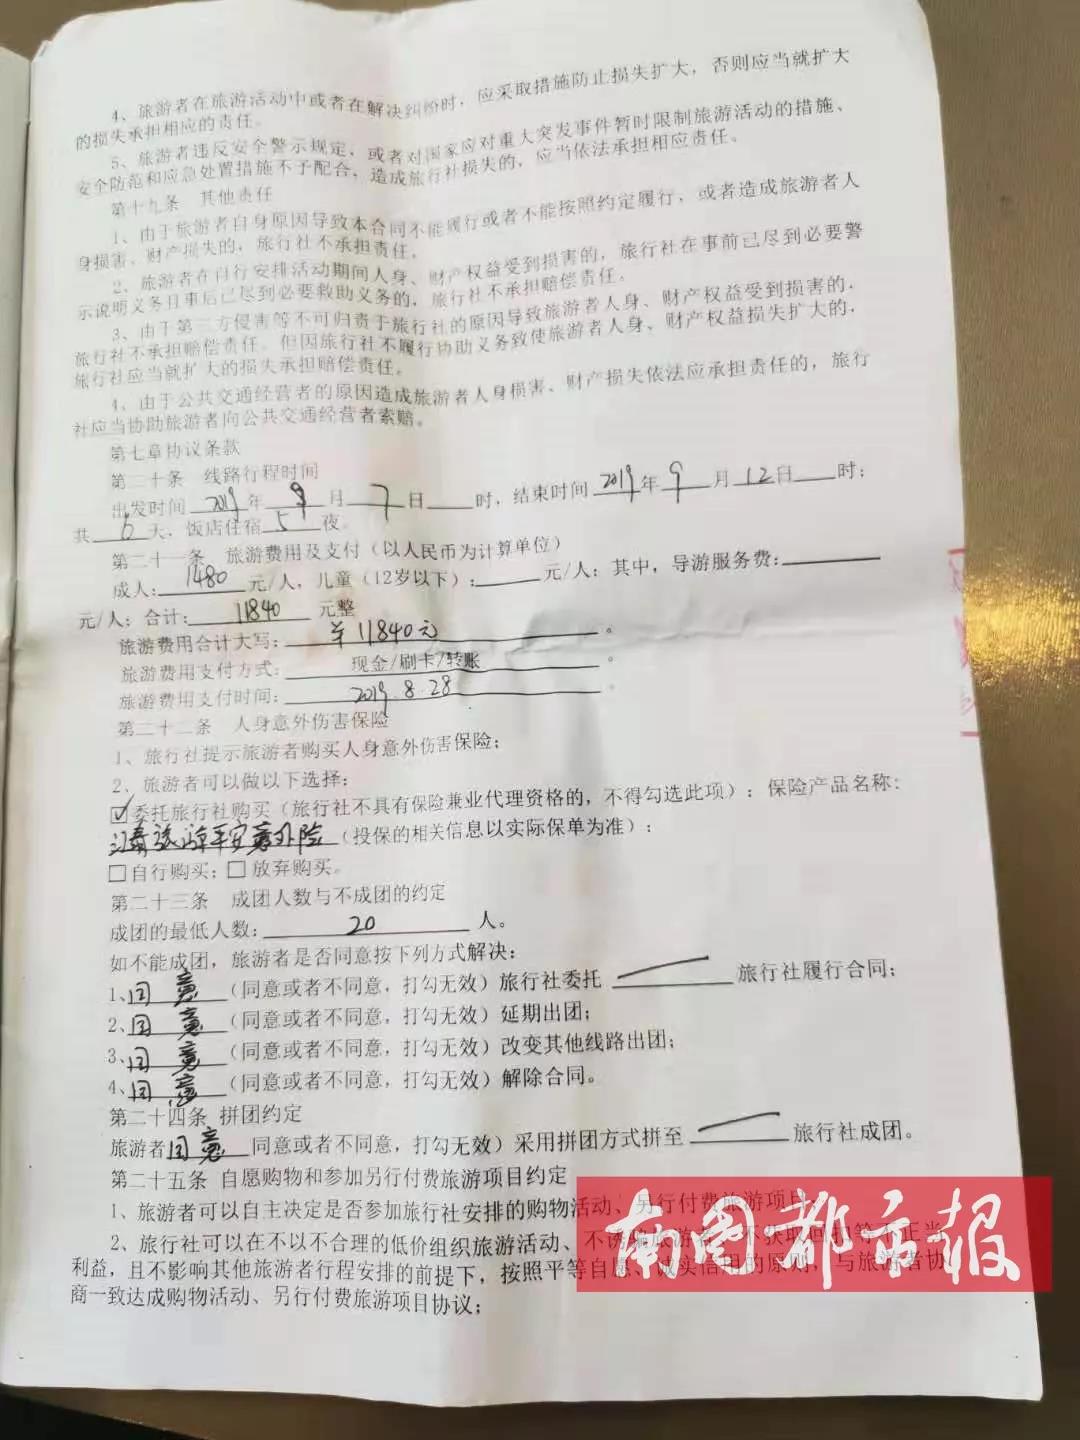 4、旅游者在旅游活动中或者在解决纠纷时，应采取措施防止损失扩大，否则应当就扩大
的损失承担相应的责任。
5、旅游者违反安全警示规定，或者对国家应对重大突发事件暂时限制旅游活动的措施、
安全防范和应急处置措施不予配合，造成旅行社损失的，应当依法承担相应责任。
第十九条 其他责任
1、由于旅游者自身原因导致本合同不能履行或者不能按照约定履行，或者造成旅游者人
身损害、财产损失的，旅行社不承担责任。
2、旅游者在自行安排活动期间人身、财产权益受到损害的，旅行社在事前已尽到必要警
示说明义务且事后已尽到必要救助义务的，旅行社不承担赔偿责任。
3、由于第三方侵害等不可归责于旅行社的原因导致旅游者人身、财产权益受到损害的，
旅行社不承担赔偿责任。但因旅行社不履行协助义务致使旅游者人身、财产权益损失扩大的，
旅行社应当就扩大的损失承担赔偿责任。
4、由于公共交通经营者的原因造成旅游者人身损害、财产损失依法应承担责任的，旅行
社应当协助旅游者向公共交通经营者索赔。
第七章协议条款
第二十条 线路行程时间
出发时间 2019 年 9 月 7 日 时，结束时间 2019 年 9 月 12 日 时；
共 6 天，饭店住宿 5 夜。
第二十一条 旅游费用及支付（以人民币为计算单位）
成人：1480 元/人，儿童（12岁以下）： 元/人；其中，导游服务费：
元/人；合计：11840 元整
旅游费用合计大写： ￥11840元 。
旅游费用支付方式： 现金/刷卡/转账 。
旅游费用支付时间： 2019.8.28 。
第二十二条 人身意外伤害保险
1、旅行社提示旅游者购买人身意外伤害保险；
2、旅游者可以做以下选择：
☑委托旅行社购买（旅行社不具有保险兼业代理资格的，不得勾选此项）：保险产品名称：
平安意外险（投保的相关信息以实际保单为准）：
□自行购买；□放弃购买。
第二十三条 成团人数与不成团的约定
成团的最低人数： 20 人。
如不能成团，旅游者是否同意按下列方式解决：
1、同意（同意或者不同意，打勾无效）旅行社委托 旅行社履行合同；
2、同意（同意或者不同意，打勾无效）延期出团；
3、同意（同意或者不同意，打勾无效）改变其他线路出团；
4、同意（同意或者不同意，打勾无效）解除合同。
第二十四条 拼团约定
旅游者同意 同意或者不同意，打勾无效）采用拼团方式拼至 旅行社成团。
第二十五条 自愿购物和参加另行付费旅游项目约定
1、旅游者可以自主决定是否参加旅行社安排的购物活动、另行付费旅游项目
2、旅行社可以在不以不合理的低价组织旅游活动、不诱骗旅游者、不获取回扣等不正当
利益，且不影响其他旅游者行程安排的前提下，按照平等自愿、诚实信用的原则，与旅游者协
商一致达成购物活动、另行付费旅游项目协议；
南国都市报